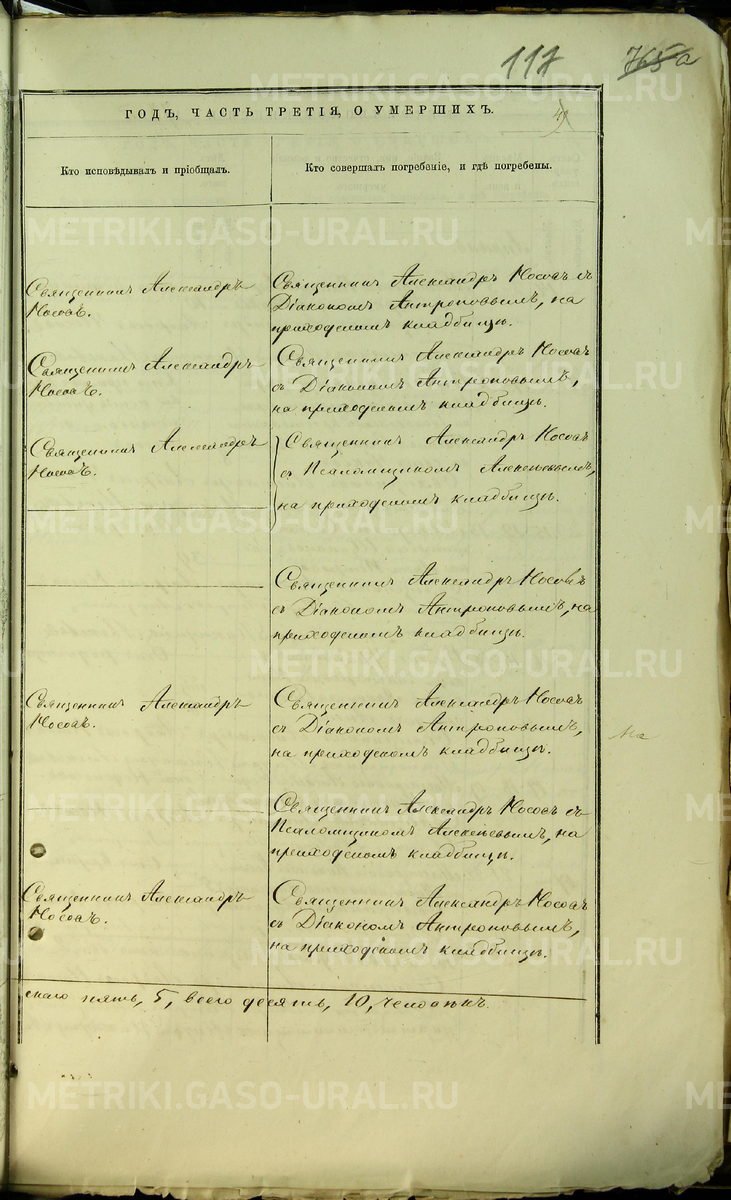 117 765а
ГОДЪ, ЧАСТЬ ТРЕТІЯ, О УМЕРШИХЪ.
Кто исповѣдывалъ и пріобщалъ.
Кто совершалъ погребеніе, и гдѣ погребены.
Священникъ Александръ
Носовъ.
Священникъ Александръ Носовъ съ
Діакономъ Антроповымъ, на
приходскомъ кладбищѣ.
Священникъ Александръ
Носовъ.
Священникъ Александръ Носовъ
съ Діакономъ Антроповымъ,
на приходскомъ кладбищѣ.
Священникъ Александръ
Носовъ.
Священникъ Александръ Носовъ
съ Псаломщикомъ Алексѣевымъ,
на приходскомъ кладбищѣ.
Священникъ Александръ Носовъ
съ Діакономъ Антроповымъ, на
приходскомъ кладбищѣ.
Священникъ Александръ
Носовъ.
Священникъ Александръ Носовъ
съ Діакономъ Антроповымъ,
на приходскомъ кладбищѣ.
Священникъ Александръ Носовъ съ
Псаломщикомъ Алексѣевымъ, на
приходскомъ кладбищѣ.
Священникъ Александръ
Носовъ.
Священникъ Александръ Носовъ
съ Діакономъ Антроповымъ,
на приходскомъ кладбищѣ.
скаго пять, 5, всего десять, 10, человѣкъ.
METRIKI.GASO-URAL.RU